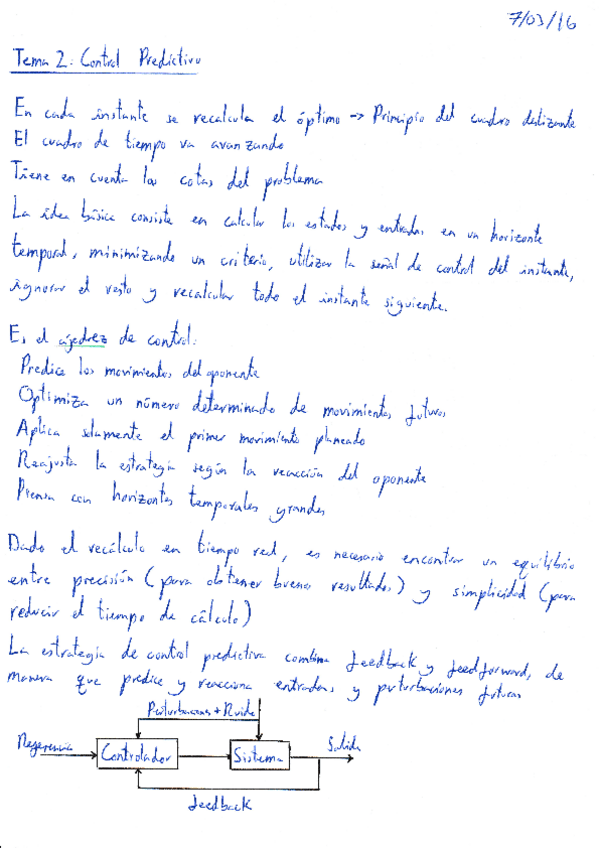 7/03/16
Tema 2: Control Predictivo
En cada instante se recalcula el óptimo -> Principio del cuadro deslizante
El cuadro de tiempo va avanzando
Tiene en cuenta las cotas del problema
La idea básica consiste en calcular los estados y entradas en un horizonte
temporal, minimizando un criterio, utilizar la señal de control del instante,
ignorar el resto y recalcular todo el instante siguiente.
Es el ajedrez de control:
Predice los movimientos del oponente
Optimiza un número determinado de movimientos futuros
Aplica solamente el primer movimiento planeado
Reajusta la estrategia según la reacción del oponente
Piensa con horizontes temporales grandes
Dado el recálculo en tiempo real, es necesario encontrar un equilibrio
entre precisión (para obtener buenos resultados) y simplicidad (para
reducir el tiempo de cálculo)
La estrategia de control predictiva combina feedback y feedforward, de
manera que predice y reacciona entradas y perturbaciones futuras
Perturbaciones + Ruido
Referencia
Controlador
Sistema
Salida
feedback